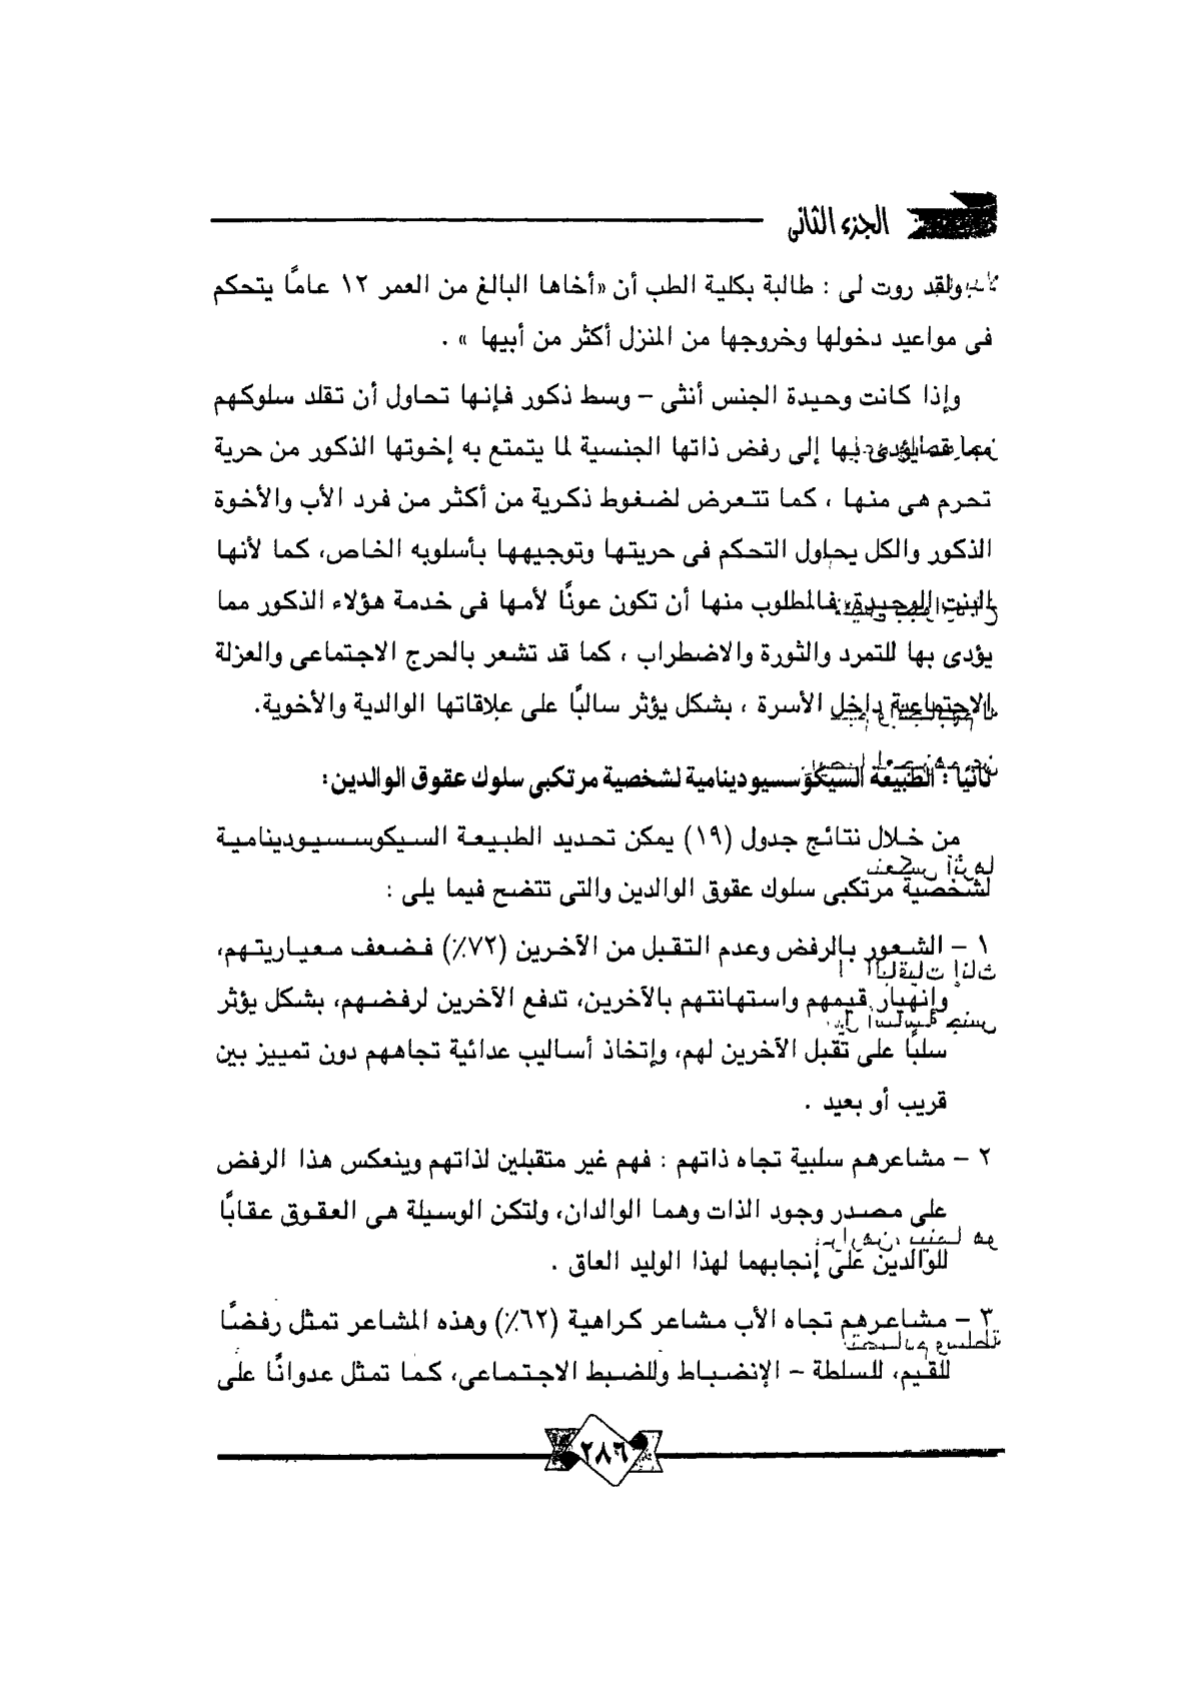 الجزء الثانى
ولقد روت لى : طالبة بكلية الطب أن «أخاها البالغ من العمر ١٢ عامًا يتحكم
فى مواعيد دخولها وخروجها من المنزل أكثر من أبيها » .
وإذا كانت وحيدة الجنس أنثى – وسط ذكور فإنها تحاول أن تقلد سلوكهم
مما قد يؤدى بها إلى رفض ذاتها الجنسية لما يتمتع به إخوتها الذكور من حرية
تحرم هى منها ، كما تتعرض لضغوط ذكرية من أكثر من فرد الأب والأخوة
الذكور والكل يحاول التحكم فى حريتها وتوجيهها بأسلوبه الخاص، كما لأنها
البنت الوحيدة، فالمطلوب منها أن تكون عونًا لأمها فى خدمة هؤلاء الذكور مما
يؤدى بها للتمرد والثورة والاضطراب ، كما قد تشعر بالحرج الاجتماعى والعزلة
الاجتماعية داخل الأسرة ، بشكل يؤثر سالبًا على علاقاتها الوالدية والأخوية.
ثانيًا : الطبيعة السيكوسسيودينامية لشخصية مرتكبى سلوك عقوق الوالدين:
من خلال نتائج جدول (١٩) يمكن تحديد الطبيعة السيكوسسيودينامية
لشخصية مرتكبى سلوك عقوق الوالدين والتى تتضح فيما يلى :
١ – الشعور بالرفض وعدم التقبل من الآخرين (٧٢٪) فضعف معياريتهم،
وإنهيار قيمهم واستهانتهم بالآخرين، تدفع الآخرين لرفضهم، بشكل يؤثر
سلبًا على تقبل الآخرين لهم، وإتخاذ أساليب عدائية تجاههم دون تمييز بين
قريب أو بعيد .
٢ – مشاعرهم سلبية تجاه ذاتهم : فهم غير متقبلين لذاتهم وينعكس هذا الرفض
على مصدر وجود الذات وهما الوالدان، ولتكن الوسيلة هى العقوق عقابًا
للوالدين على إنجابهما لهذا الوليد العاق .
٣ – مشاعرهم تجاه الأب مشاعر كراهية (٦٢٪) وهذه المشاعر تمثل رفضًا
للقيم، للسلطة – الإنضباط وللضبط الاجتماعى، كما تمثل عدوانًا على
٢٨٦